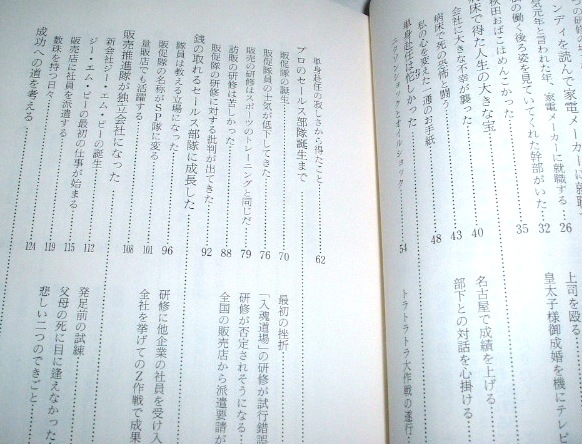 ンディを読んで家電メーカーに就職
気元年と言われた年、家電メーカーに就職する……26
の働く後ろ姿を見ていてくれた幹部がいた……32
秋田おばこはめんこかった……35
床で得た人生の大きな宝……40
会社に大きな不幸が襲った……43
病床で死の恐怖と闘う
私の心を変えた一通のお手紙……48
単身赴任は
ニクソンショックとオイルショック……54
上司を殴る
皇太子様御成婚を機にテレビ
名古屋で成績を上げる
部下との対話を心掛ける
トラトラトラ大作戦の遂行
単身赴任の寂しさから得たこと……62
プロのセールス部隊誕生まで
販促隊の誕生……70
販促隊員の士気が低下してきた……76
販売の研修はスポーツのトレーニングと同じだ……79
訪販の研修は苦しかった……88
販促隊の研修に対する批判が出てきた……92
銭の取れるセールス部隊に成長した
隊員は教える立場になった……96
販促隊の名称がSP隊に変る……101
量販店でも活躍する……108
販売推進隊が独立会社になった
新会社ジー・エム・ピーの誕生……112
ジー・エム・ピーの最初の仕事が始まる……115
販売店に社員を派遣する……119
数珠を持つ日々……124
成功への道を考える
最初の挫折
「入魂道場」の研修が試行錯誤
研修が否定されそうになる
全国の販売店から派遣要請が
研修に他企業の社員を受け入
全社を挙げてのZ作戦で成果
発足前の試練
父母の死に目に逢えなかった
悲しい二つのできごと